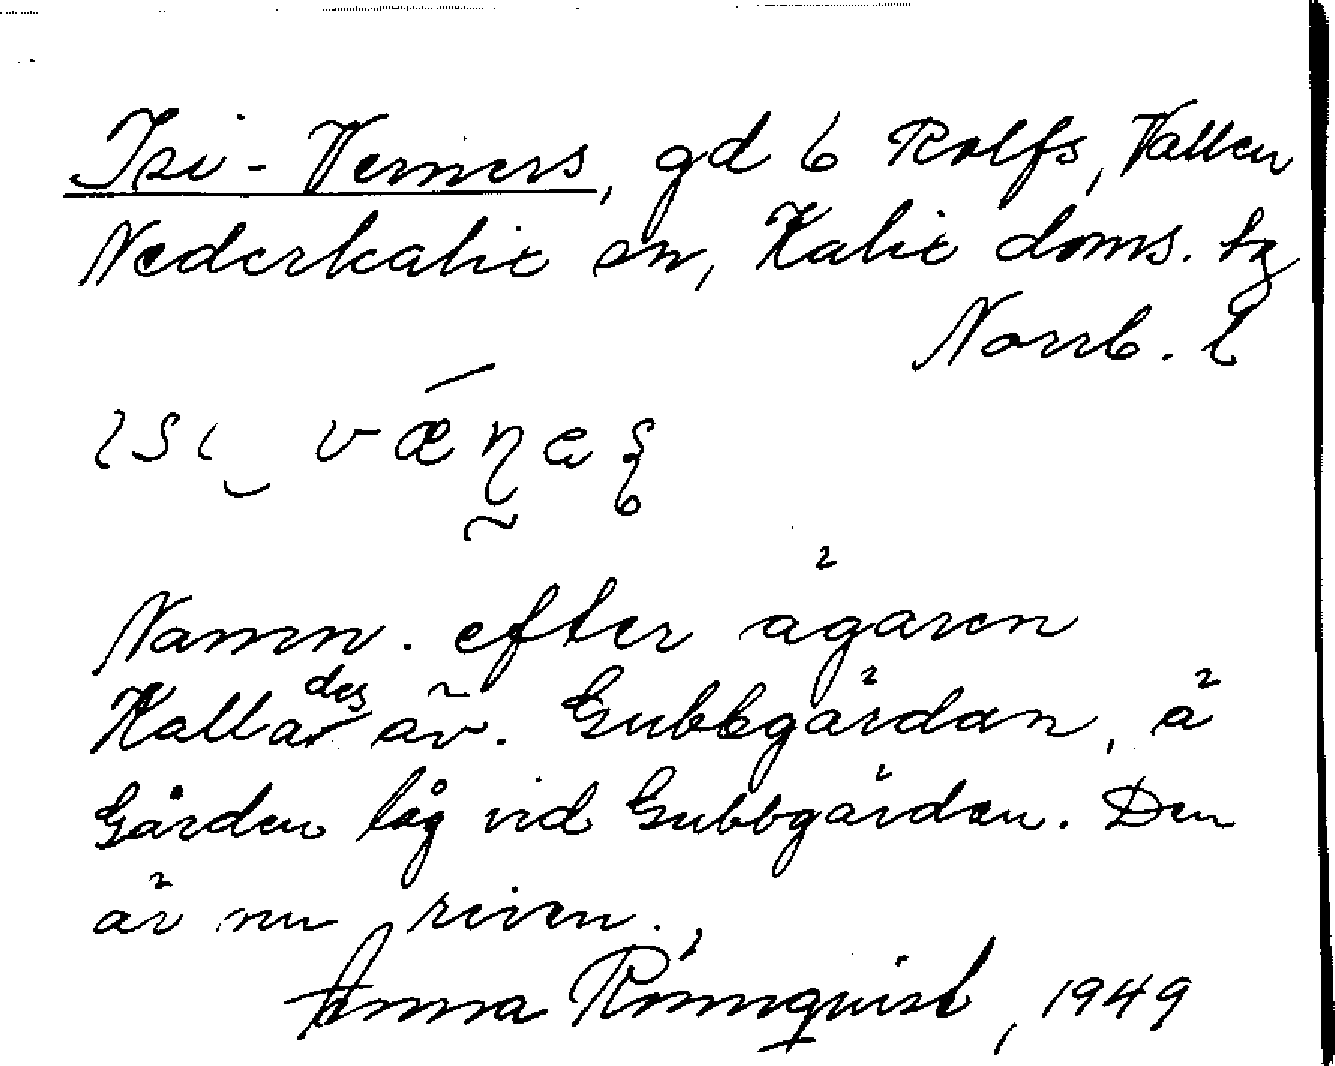 Isi-Verners, gd 6 Rolfs, Vallen
Nederkalix sn, Kalix doms. tg
Norrb. l
Namn. efter ägaren
Kallades äv. Gubbgärdan, ä
Gården låg vid Gubbgärdan. Den
är nu riven.
Anna Rönnqvist, 1949